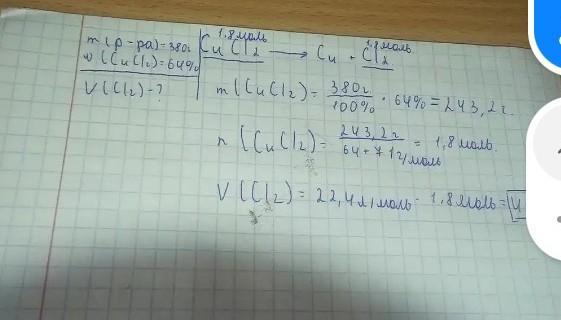 m (р-ра) = 380г
ω (CuCl2) = 64%
V (Cl2) - ?
1,8 моль 1,8 моль
CuCl2 → Cu + Cl2
m (CuCl2) = 380г / 100% · 64% = 243,2г.
n (CuCl2) = 243,2г / 64+71г/моль = 1,8 моль.
V (Cl2) = 22,4л/моль · 1,8 моль = 4